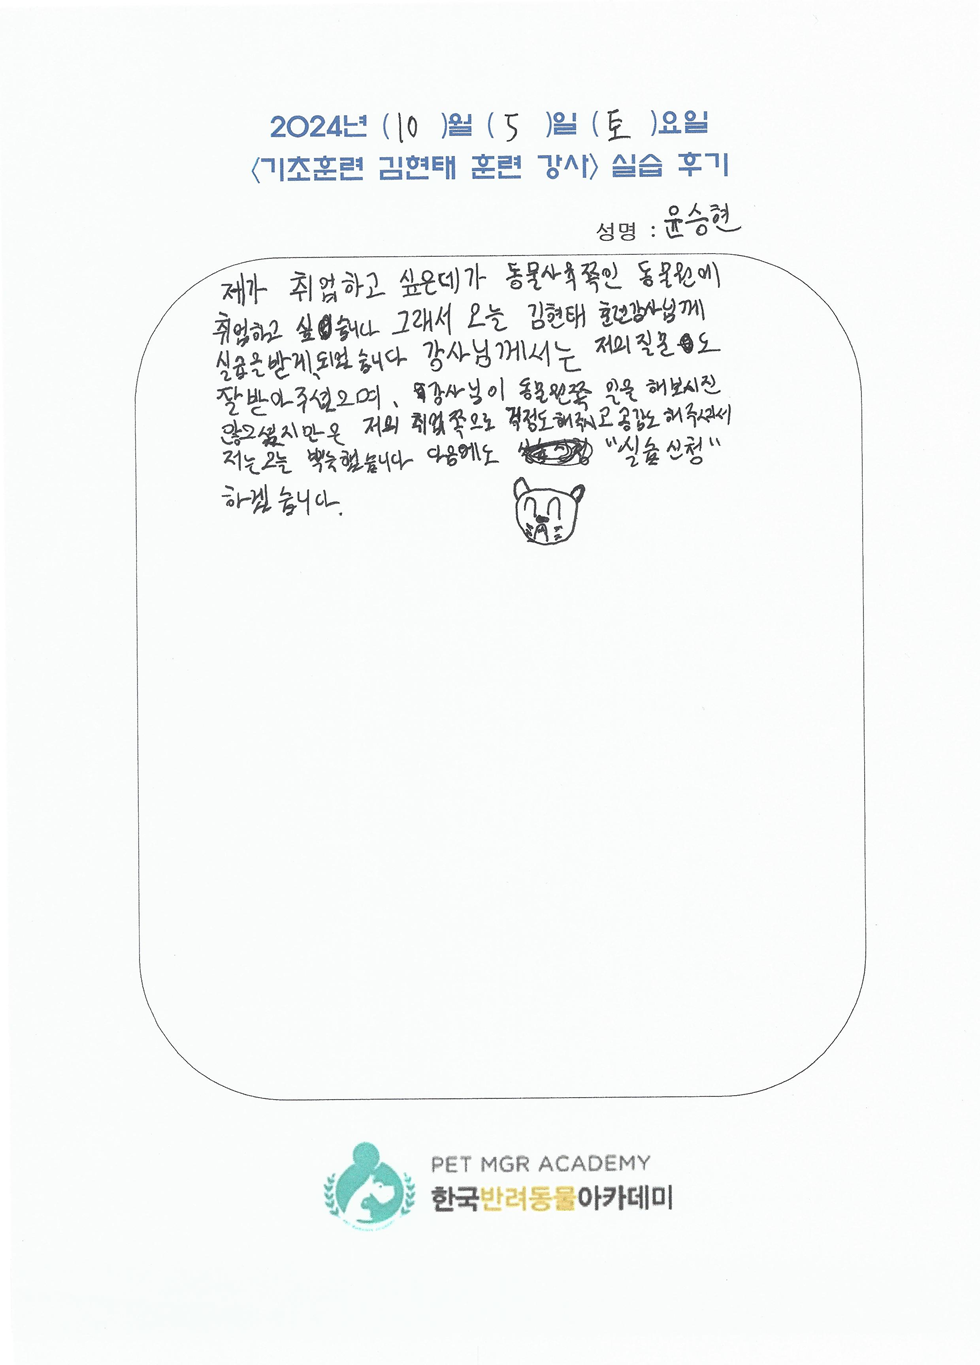 2024년 (10)월 (5)일 (토)요일
<기초훈련 김현태 훈련 강사> 실습 후기
성명 : 윤승현
제가 취업하고 싶은데가 동물사육쪽인 동물원에
취업하고 싶습니다 그래서 오늘 김현태 훈련강사님께
실습을 받게 되었습니다 강사님께서는 저의 질문도
잘 받아주셨으며, 강사님이 동물원쪽 일을 해보시진
않으셨지만은 저의 취업쪽으로 걱정도 해주시고 공감도 해주셔서
저는 오늘 뿌듯했습니다 다음에도 "실습 신청"
하겠습니다.
PET MGR ACADEMY
한국반려동물아카데미